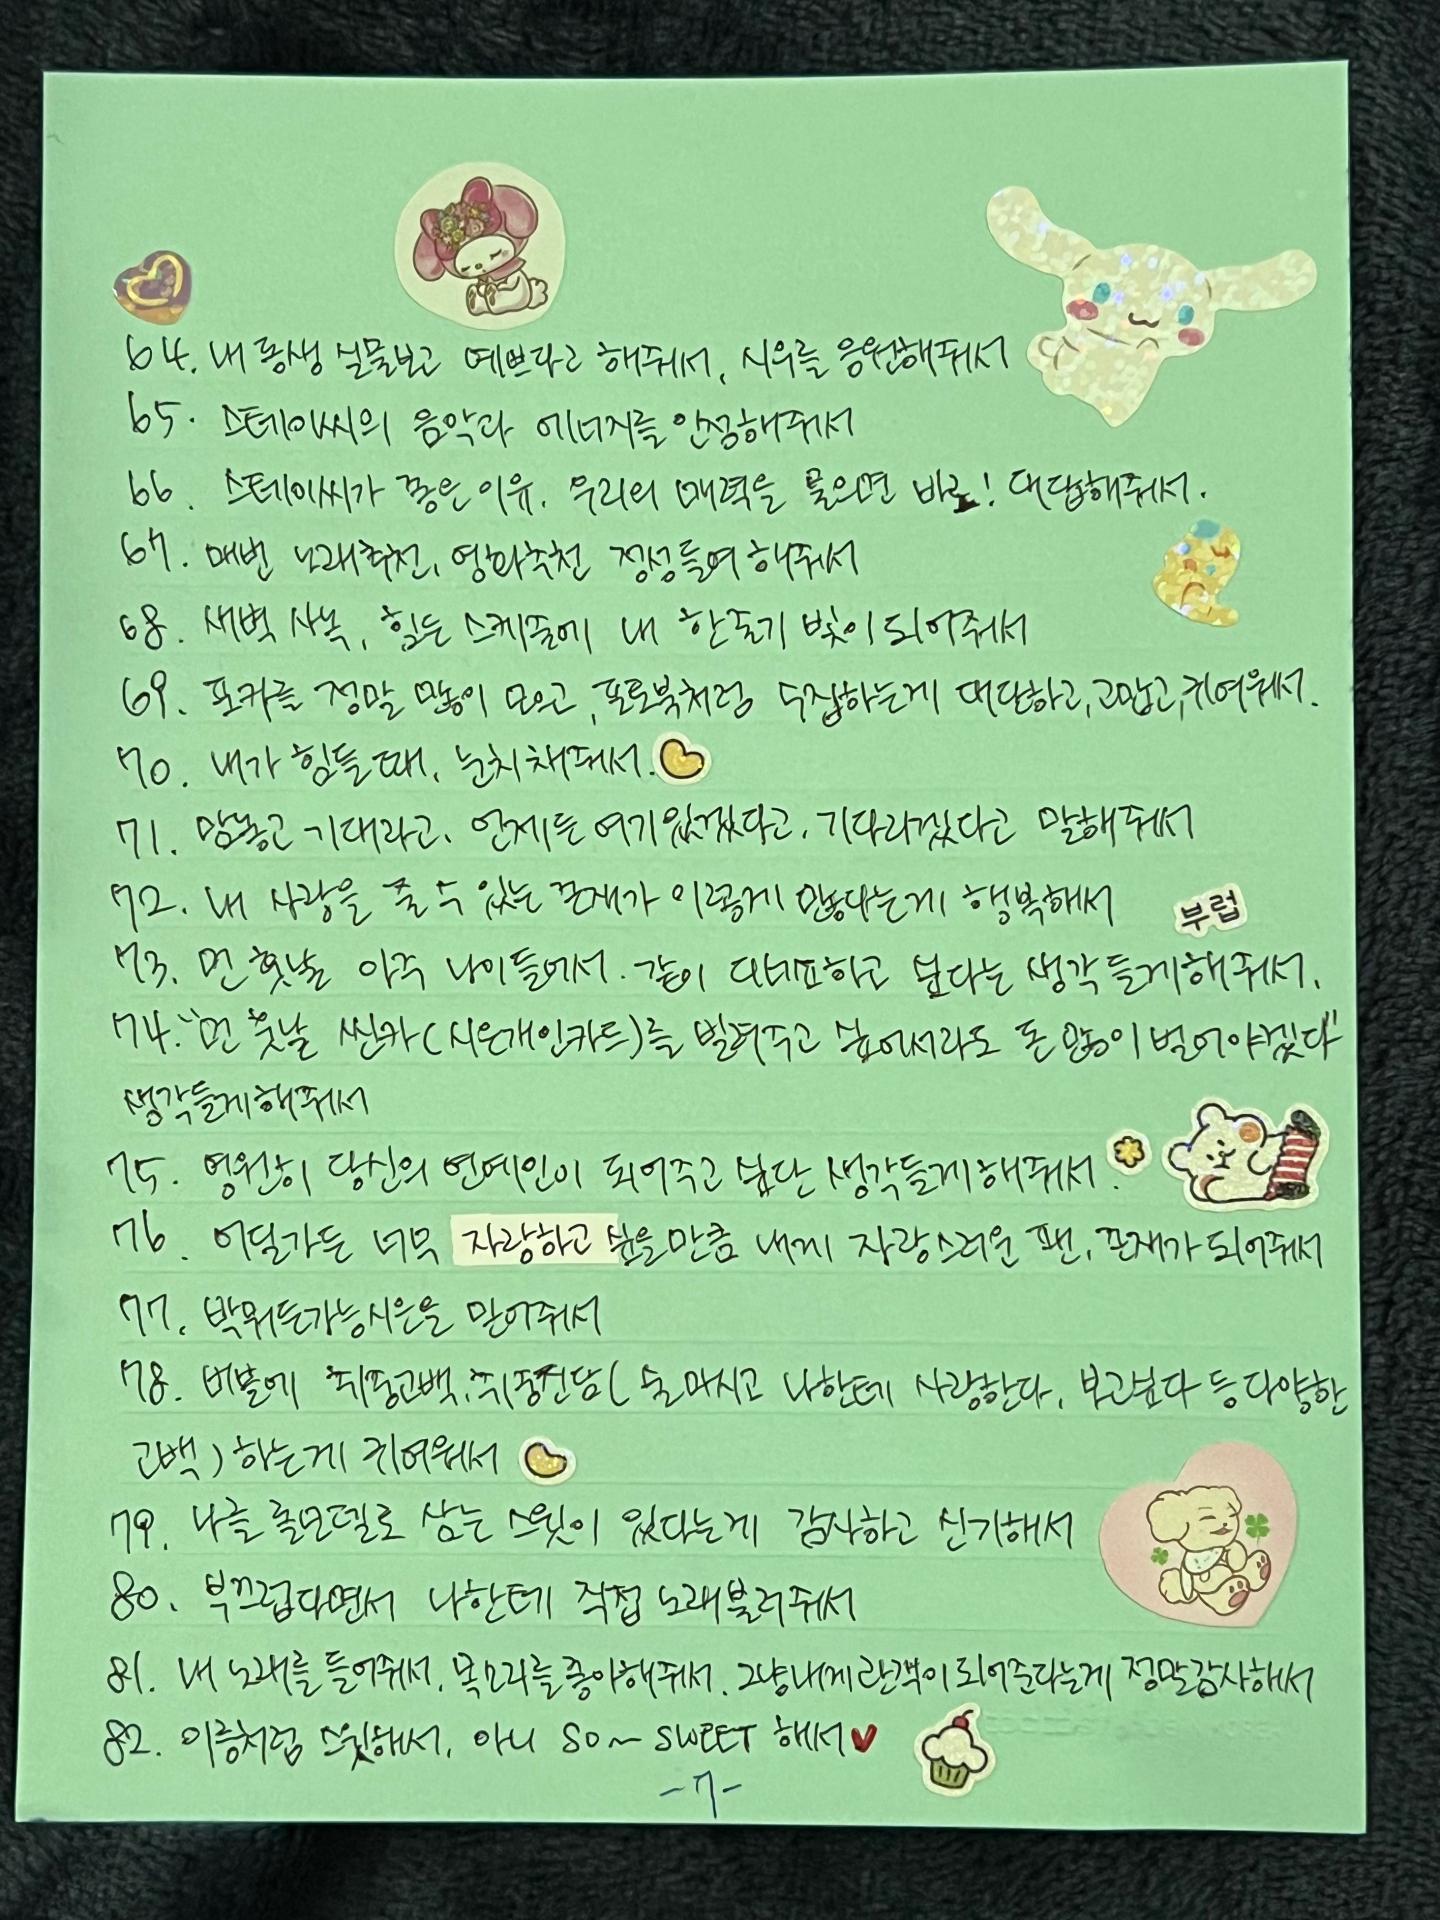 64. 내 동생 실물보고 예쁘다고 해줘서, 시우를 응원해줘서
65. 스테이씨의 음악과 에너지를 인정해줘서
66. 스테이씨가 좋은 이유. 우리의 매력을 물으면 바로! 대답해줘서.
67. 매번 노래추천, 영화추천 정성들여 해줘서
68. 새벽 사녹, 힘든 스케줄에 내 한줄기 빛이 되어줘서
69. 포카를 정말 많이 모으고, 포토북처럼 수집하는게 대단하고, 고맙고, 귀여워서.
70. 내가 힘들때, 눈치채줘서.
71. 맘놓고 기대라고, 언제든 여기있겠다고, 기다리겠다고 말해줘서
72. 내 사랑을 줄 수 있는 존재가 이렇게 많다는게 행복해서
부럽
73. 먼 훗날 아주 나이들어서. 같이 디너쇼하고 싶다는 생각 들게해줘서.
74. "먼 훗날 씬카(시은개인카드)를 빌려주고 싶어서라도 돈 많이 벌어야겠다"
생각들게해줘서
75. 영원히 당신의 연예인이 되어주고 싶단 생각들게해줘서.
76. 어딜가든 너무 자랑하고 싶을만큼 내게 자랑스러운 팬, 존재가 되어줘서
77. 박뭐든가능시은을 믿어줘서
78. 버블에 취중고백, 취중진담( 술 마시고 나한테 사랑한다, 보고싶다 등 다양한
고백) 하는게 귀여워서
79. 나를 롤모델로 삼는 스윗이 있다는게 감사하고 신기해서
80. 부끄럽다면서 나한테 직접 노래불러줘서
81. 내 노래를 들어줘서, 목소리를 좋아해줘서. 그냥 내게 관객이 되어준다는게 정말감사해서
82. 이름처럼 스윗해서, 아니 SO~ SWEET 해서
-7-